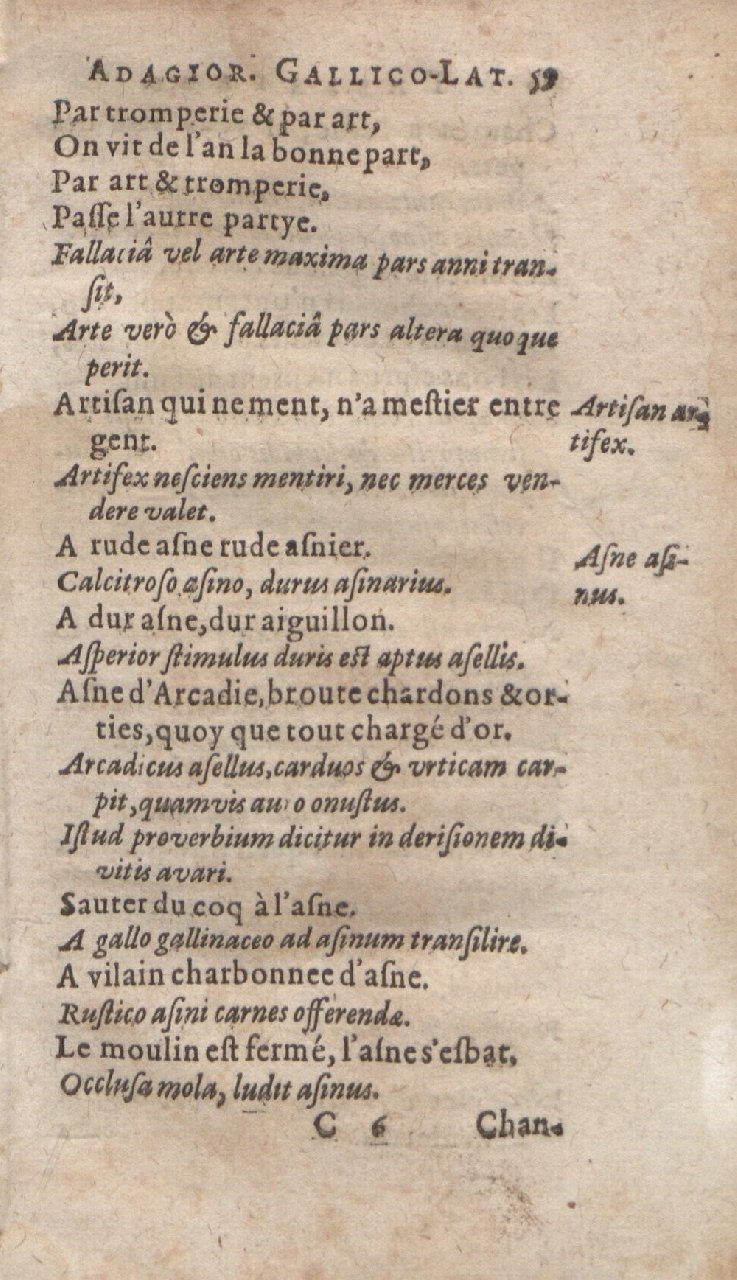 ADAGIOR. GALLICO-LAT. 59
Par tromperie & par art,
On vit de l'an la bonne part,
Par art & tromperie,
Paſſe l'autre partye.
Fallaciâ vel arte maxima pars anni tran-
ſit,
Arte verò & fallaciâ pars altera quoque
perit.
Artiſan qui ne ment, n'a meſtier entre
gent.
Artiſan ar-
tifex.
Artifex neſciens mentiri, nec merces ven-
dere valet.
A rude aſne rude aſnier.
Aſne aſi-
nus.
Calcitroſo aſino, durus aſinarius.
A dur aſne, dur aiguillon.
Aſperior ſtimulus duris eſt aptus aſellis.
Aſne d'Arcadie, broute chardons & or-
ties, quoy que tout chargé d'or.
Arcadicus aſellus, carduos & vrticam car-
pit, quamvis auro onuſtus.
Iſtud proverbium dicitur in deriſionem di-
vitis avari.
Sauter du coq à l'aſne.
A gallo gallinaceo ad aſinum tranſilire.
A vilain charbonnee d'aſne.
Ruſtico aſini carnes offerendæ.
Le moulin eſt fermé, l'aſne s'esbat.
Occluſa mola, ludit aſinus.
C 6 Chan-